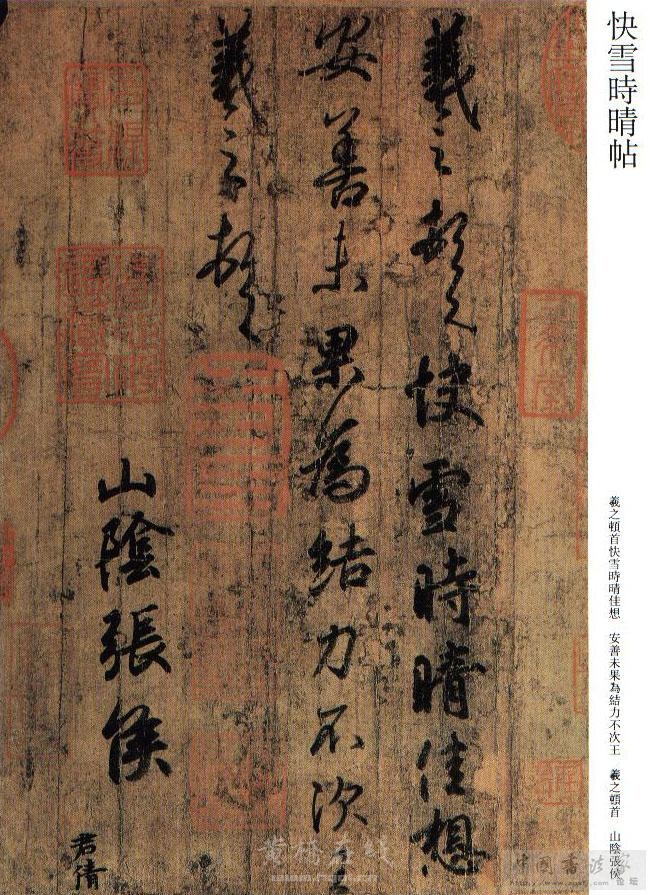 快雪時晴帖
羲之頓首快雪時晴佳想　安善未果為結力不次王　羲之頓首　山陰張侯
羲之頓首快雪時晴佳想
安善未果為結力不次王
羲之頓首
山陰張侯
君倩